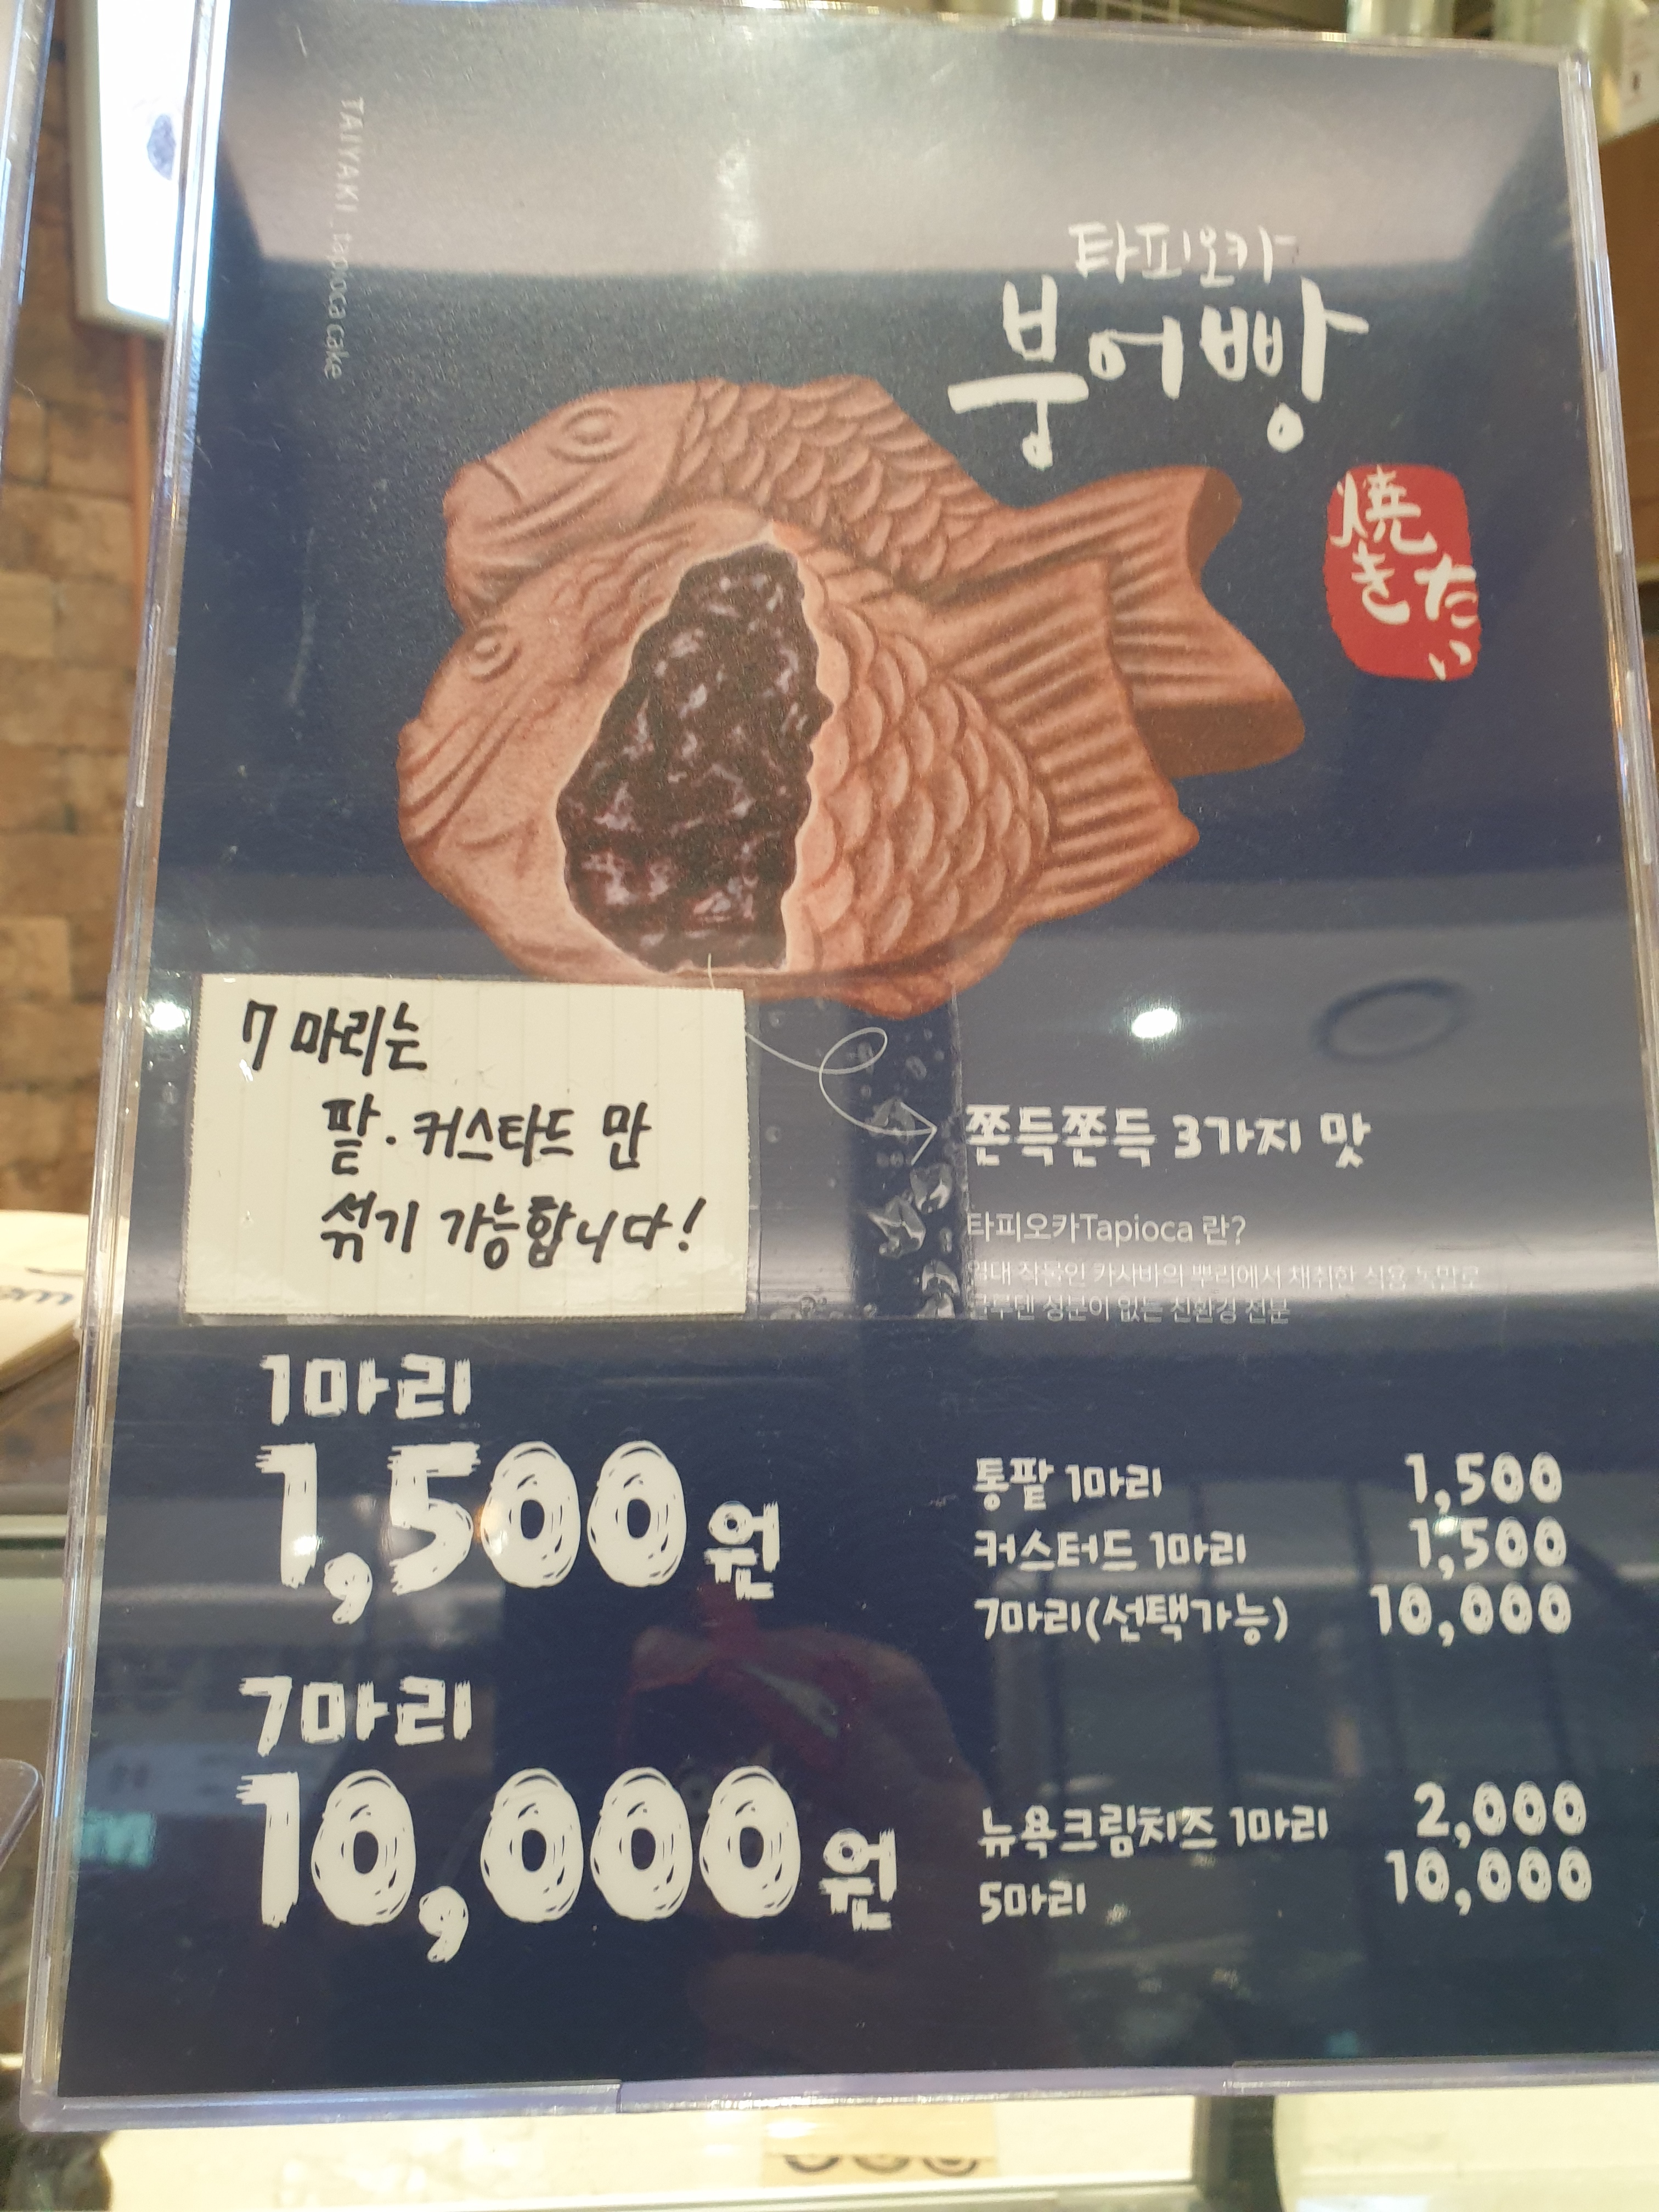 TAIYAKI_tapioca cake
타피오카
붕어빵
焼き
たい
7 마리는
팥. 커스타드 만
섞기 가능합니다!
쫀득쫀득 3가지 맛
타피오카Tapioca 란?
열대 작물인 카사바의 뿌리에서 채취한 식용 녹말로
글루텐 성분이 없는 친환경 전분
1마리
1,500원
통팥 1마리 1,500
커스터드 1마리 1,500
7마리(선택가능) 10,000
7마리
10,000원
뉴욕크림치즈 1마리 2,000
5마리 10,000